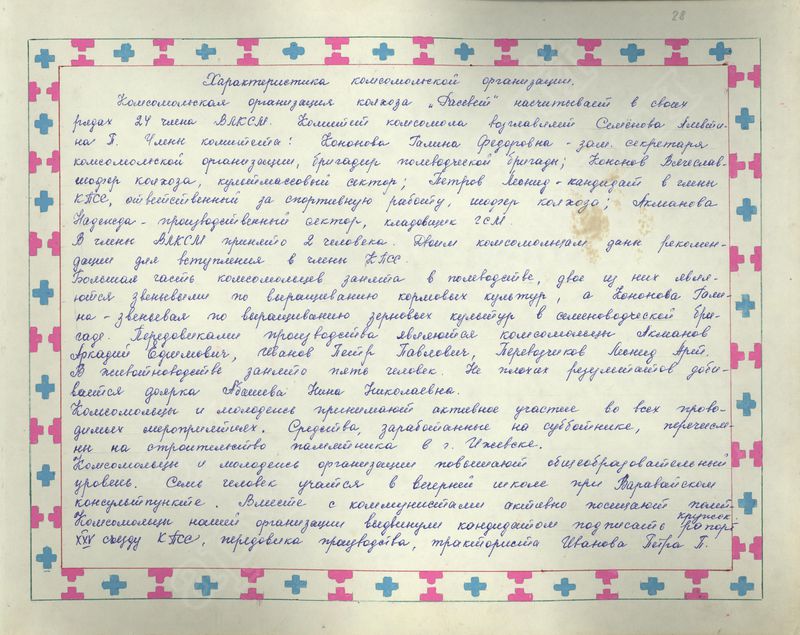 28
Характеристика комсомольской организации.
Комсомольская организация колхоза „Рассвет" насчитывает в своих
рядах 24 члена ВЛКСМ. Комитет комсомола возглавляет Семёнова Алевти-
на П. Члены комитета: Кононова Галина Федоровна - зам. секретаря
комсомольской организации, бригадир полеводческой бригады; Кононов Вячеслав-
шофер колхоза, культмассовый сектор; Петров Леонид - кандидат в члены
КПСС, ответственный за спортивную работу, шофер колхоза; Акманова
Надежда - производственный сектор, кладовщик ГСМ.
В члены ВЛКСМ принято 2 человека. Двоим комсомольцам даны рекомен-
дации для вступления в члены КПСС.
Большая часть комсомольцев занята в полеводстве, двое из них явля-
ются звеньевыми по выращиванию кормовых культур, а Кононова Гали-
на - звеньевая по выращиванию зерновых культур в семеноводческой бри-
гаде. Передовиками производства являются комсомольцы Акманов
Аркадий Ефимович, Иванов Петр Павлович, Перевозчиков Леонид
В животноводстве занято пять человек. Не плохих результатов доби-
вается доярка Абашева Нина Николаевна.
Комсомольцы и молодежь принимают активное участие во всех прово-
димых мероприятиях. Средства, заработанные на субботнике, перечисле-
ны на строительство памятника в г. Ижевске.
Комсомольцы и молодежь организации повышают общеобразовательный
уровень. Семь человек учатся в вечерней школе при Варавайском
консультпункте. Вместе с коммунистами активно посещают полит-
кружок
Комсомольцы нашей организации выдвинули кандидатом подписать рапорт
XXV съезду КПСС, передовика производства, тракториста Иванова Петра П.